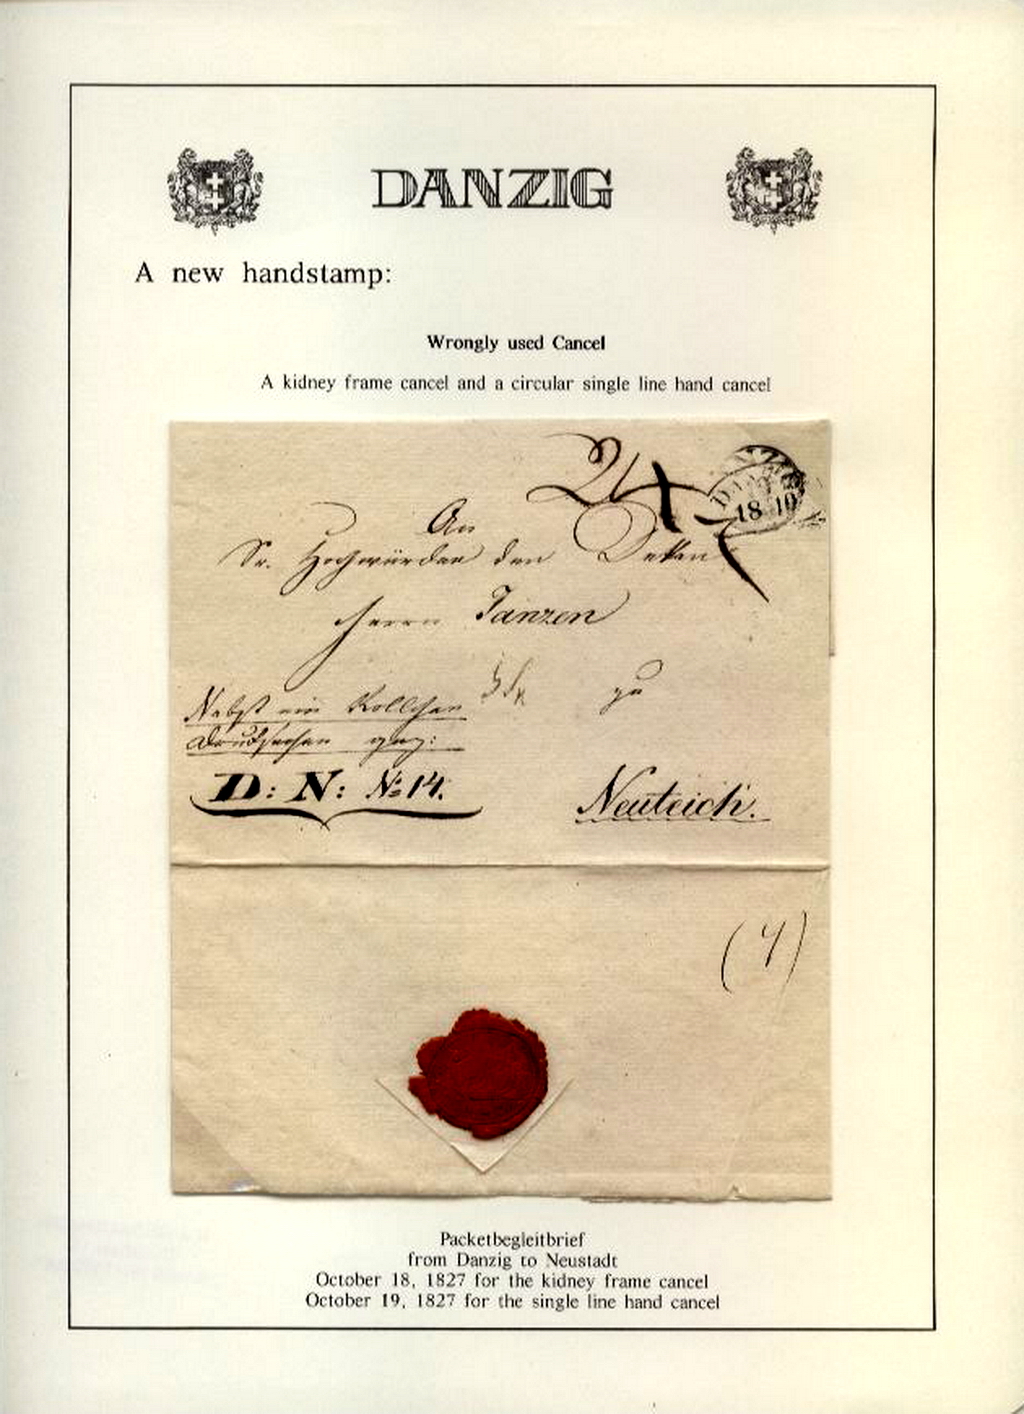 DANZIG
A new handstamp:
Wrongly used Cancel
A kidney frame cancel and a circular single line hand cancel
24
DANZIG
18 10
An
Sr. Hochwürden den Dekan
Herrn Janzen
zu
Nebst ein Rollchen
Drucksachen gez:
D: N: No 14.
Neuteich.
(4)
Packetbegleitbrief
from Danzig to Neustadt
October 18, 1827 for the kidney frame cancel
October 19, 1827 for the single line hand cancel